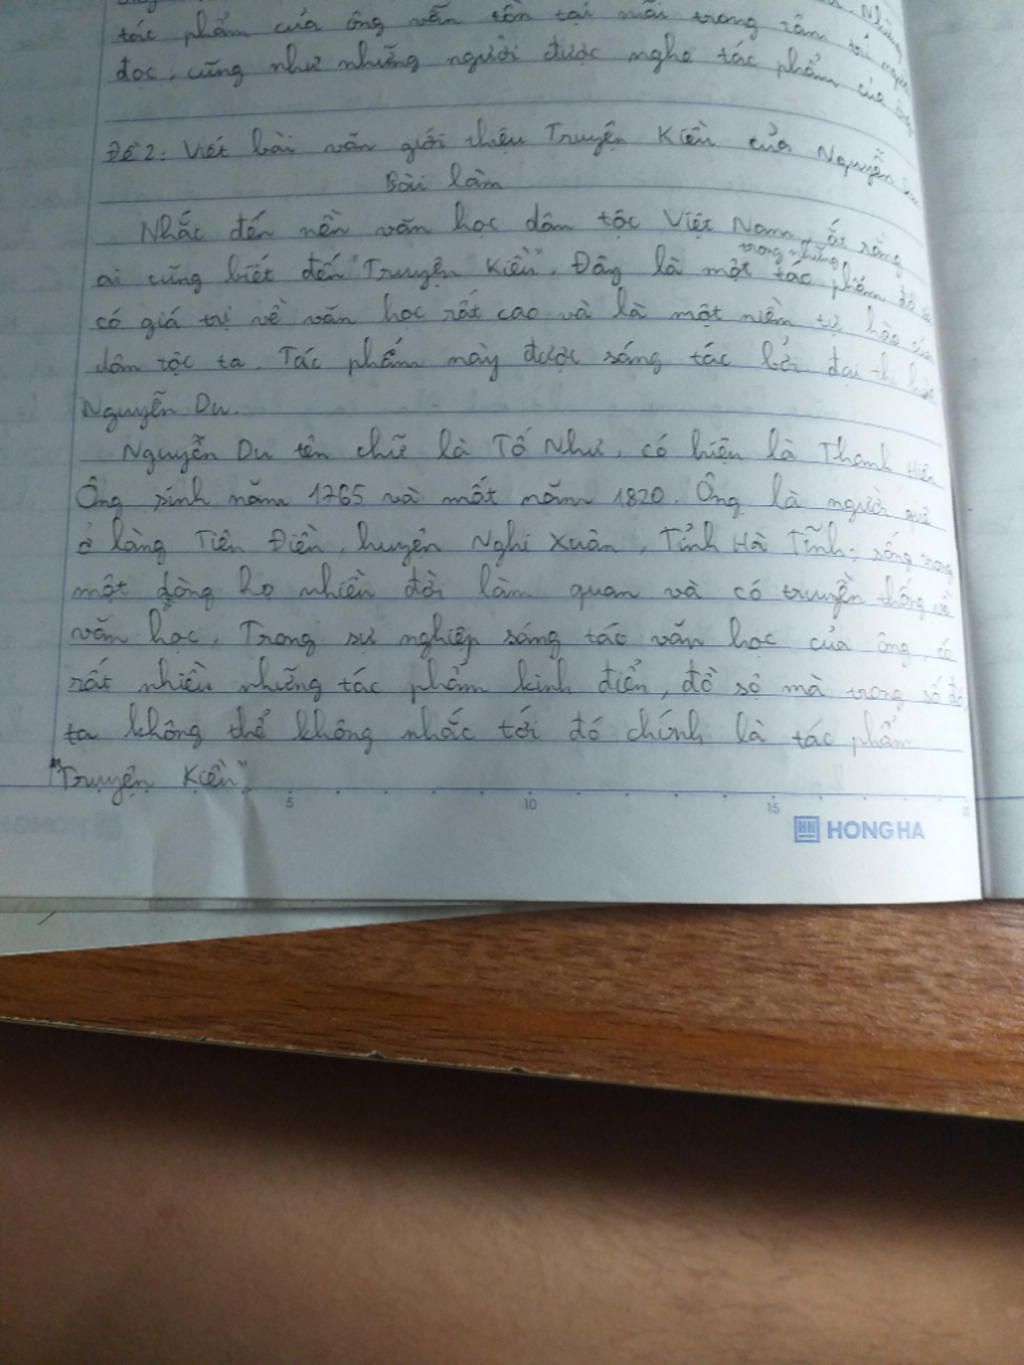 tác phẩm của ông vẫn tồn tại mãi trong tâm trí
đọc, cũng như những người được nghe tác phẩm của ông
Đề 2: Viết bài văn giới thiệu Truyện Kiều của Nguyễn Du
Bài làm
Nhắc đến nền văn học dân tộc Việt Nam, ắt rằng
trong những
ai cũng biết đến "Truyện Kiều". Đây là một tác phẩm đồ sộ
có giá trị về văn học rất cao và là một niềm tự hào của
dân tộc ta. Tác phẩm này được sáng tác bởi đại thi hào
Nguyễn Du.
Nguyễn Du tên chữ là Tố Như, có hiệu là Thanh Hiên
Ông sinh năm 1765 và mất năm 1820. Ông là người quê
ở làng Tiên Điền, huyện Nghi Xuân, Tỉnh Hà Tĩnh; sống trong
một dòng họ nhiều đời làm quan và có truyền thống về
văn học. Trong sự nghiệp sáng tác văn học của ông, có
rất nhiều những tác phẩm kinh điển, đồ sộ mà trong số đó
ta không thể không nhắc tới đó chính là tác phẩm
"Truyện Kiều".
5 10 15
HONG HA